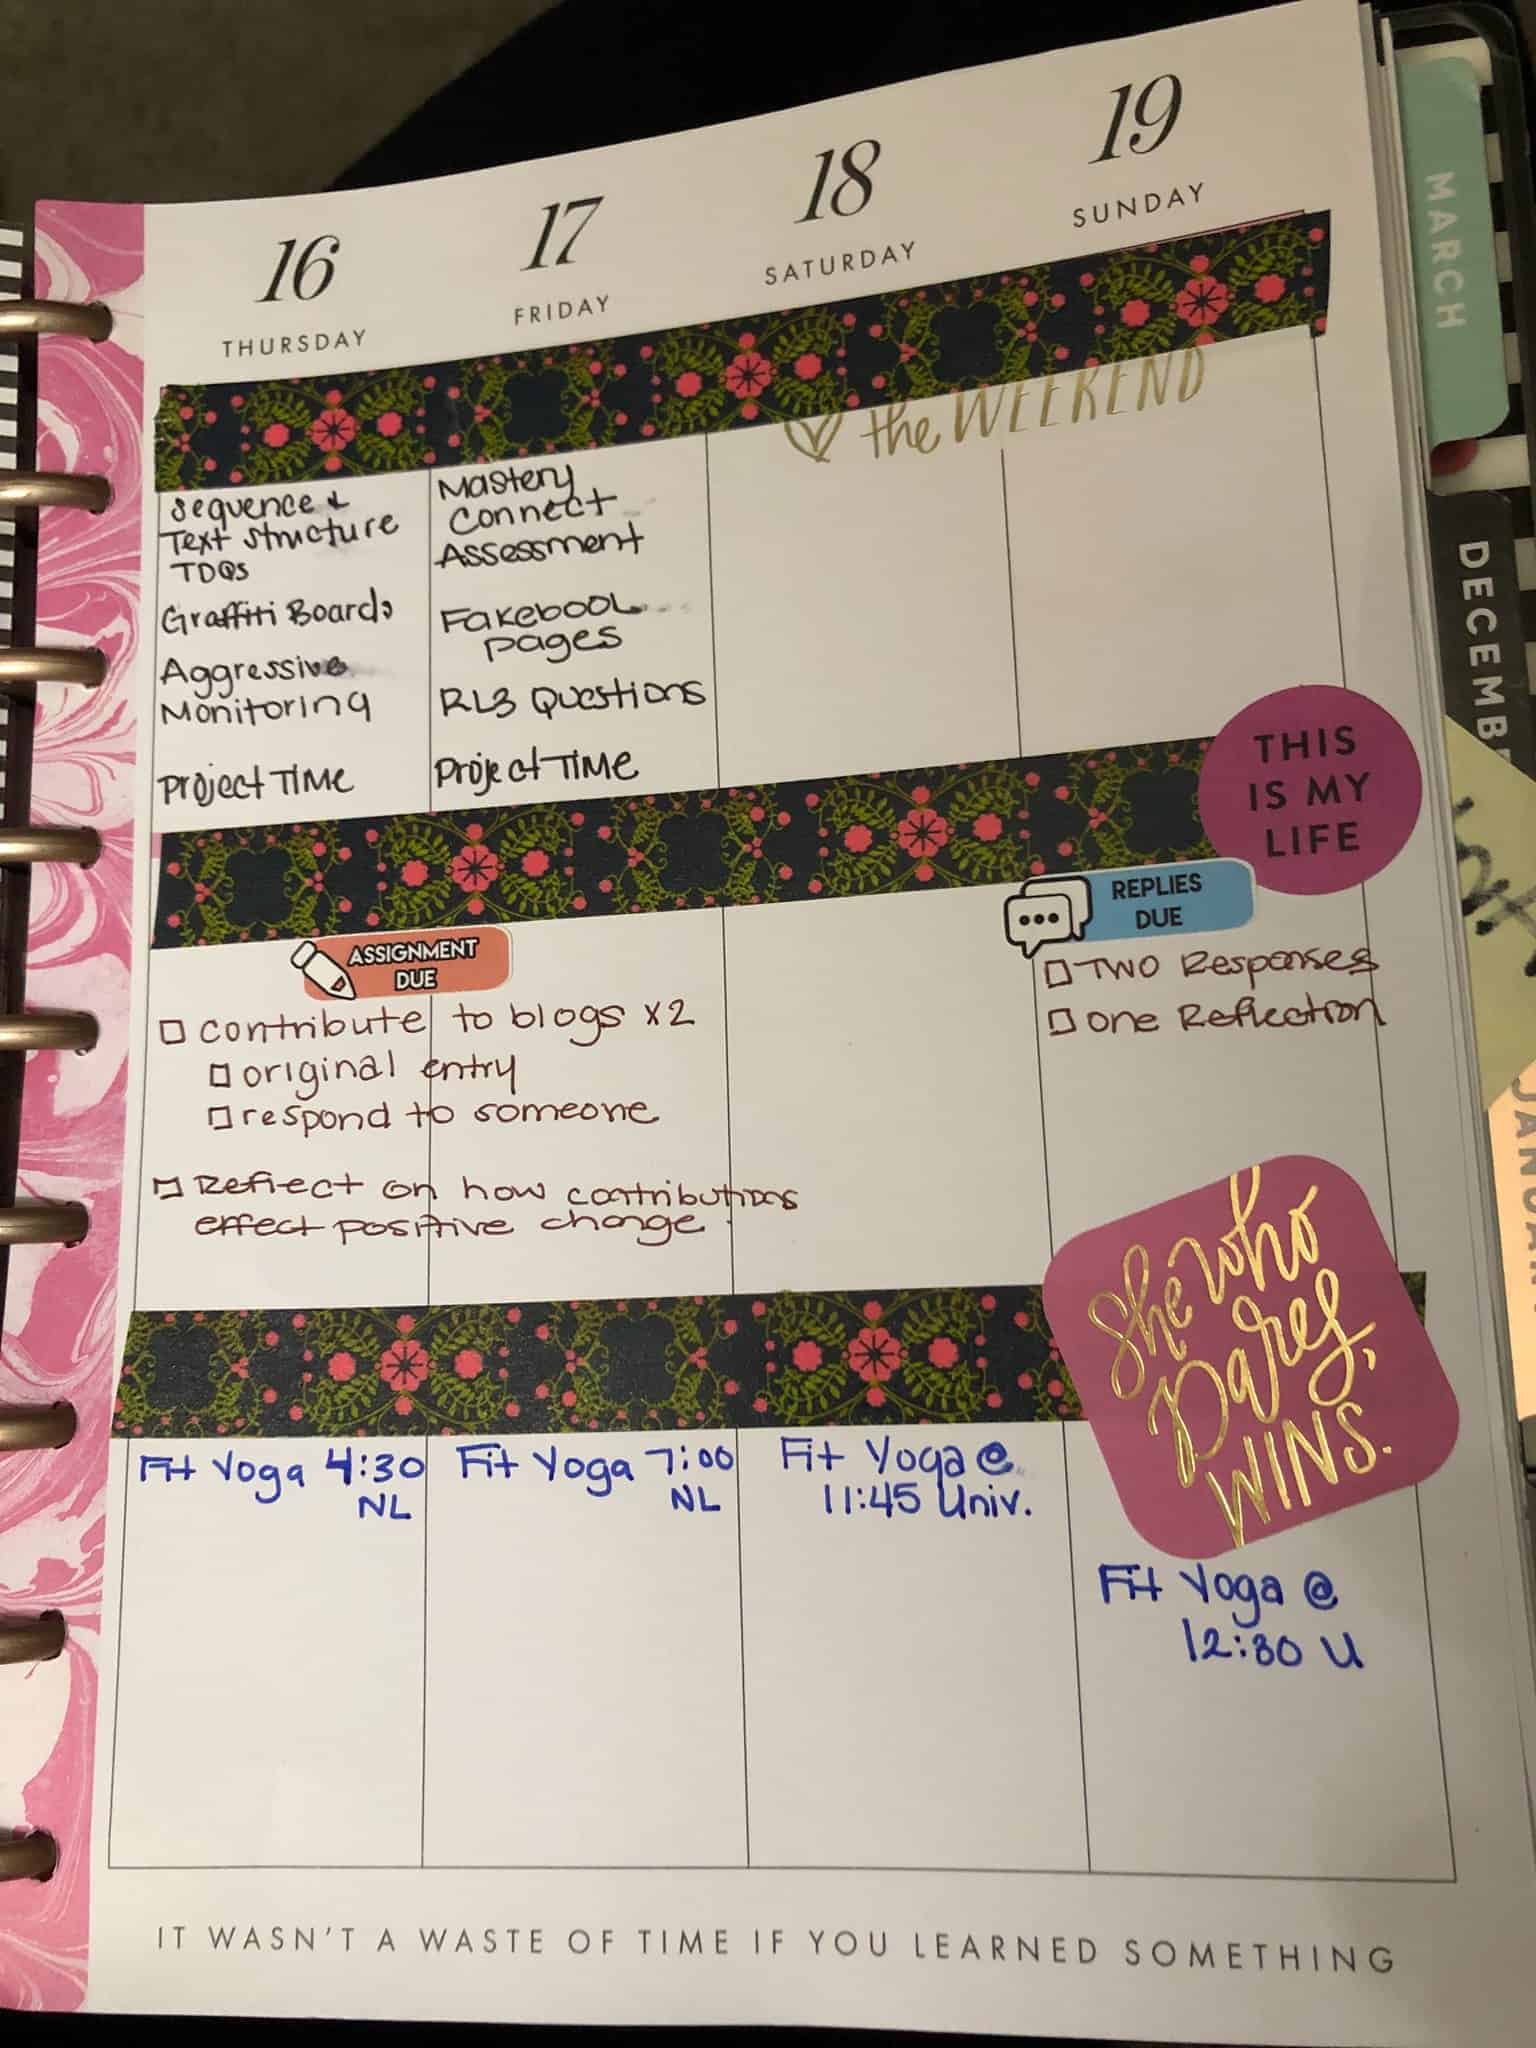 16
THURSDAY
17
FRIDAY
18
SATURDAY
19
SUNDAY
the WEEKEND
Sequence &
Text Structure
TDQs
Graffiti Boards
Aggressive
Monitoring
Project TIME
Mastery
Connect
Assessment
Fakebook
pages
RL3 Questions
Project TIME
THIS
IS MY
LIFE
ASSIGNMENT
DUE
contribute to blogs x2
original entry
respond to someone
Reflect on how contributions
effect positive change.
REPLIES
DUE
TWO Responses
One Reflection
She who
Dares,
WINS.
Fit Yoga 4:30
NL
Fit Yoga 7:00
NL
Fit Yoga @
11:45 Univ.
Fit Yoga @
12:30 U
IT WASN'T A WASTE OF TIME IF YOU LEARNED SOMETHING
MARCH
DECEMB
JANUAR